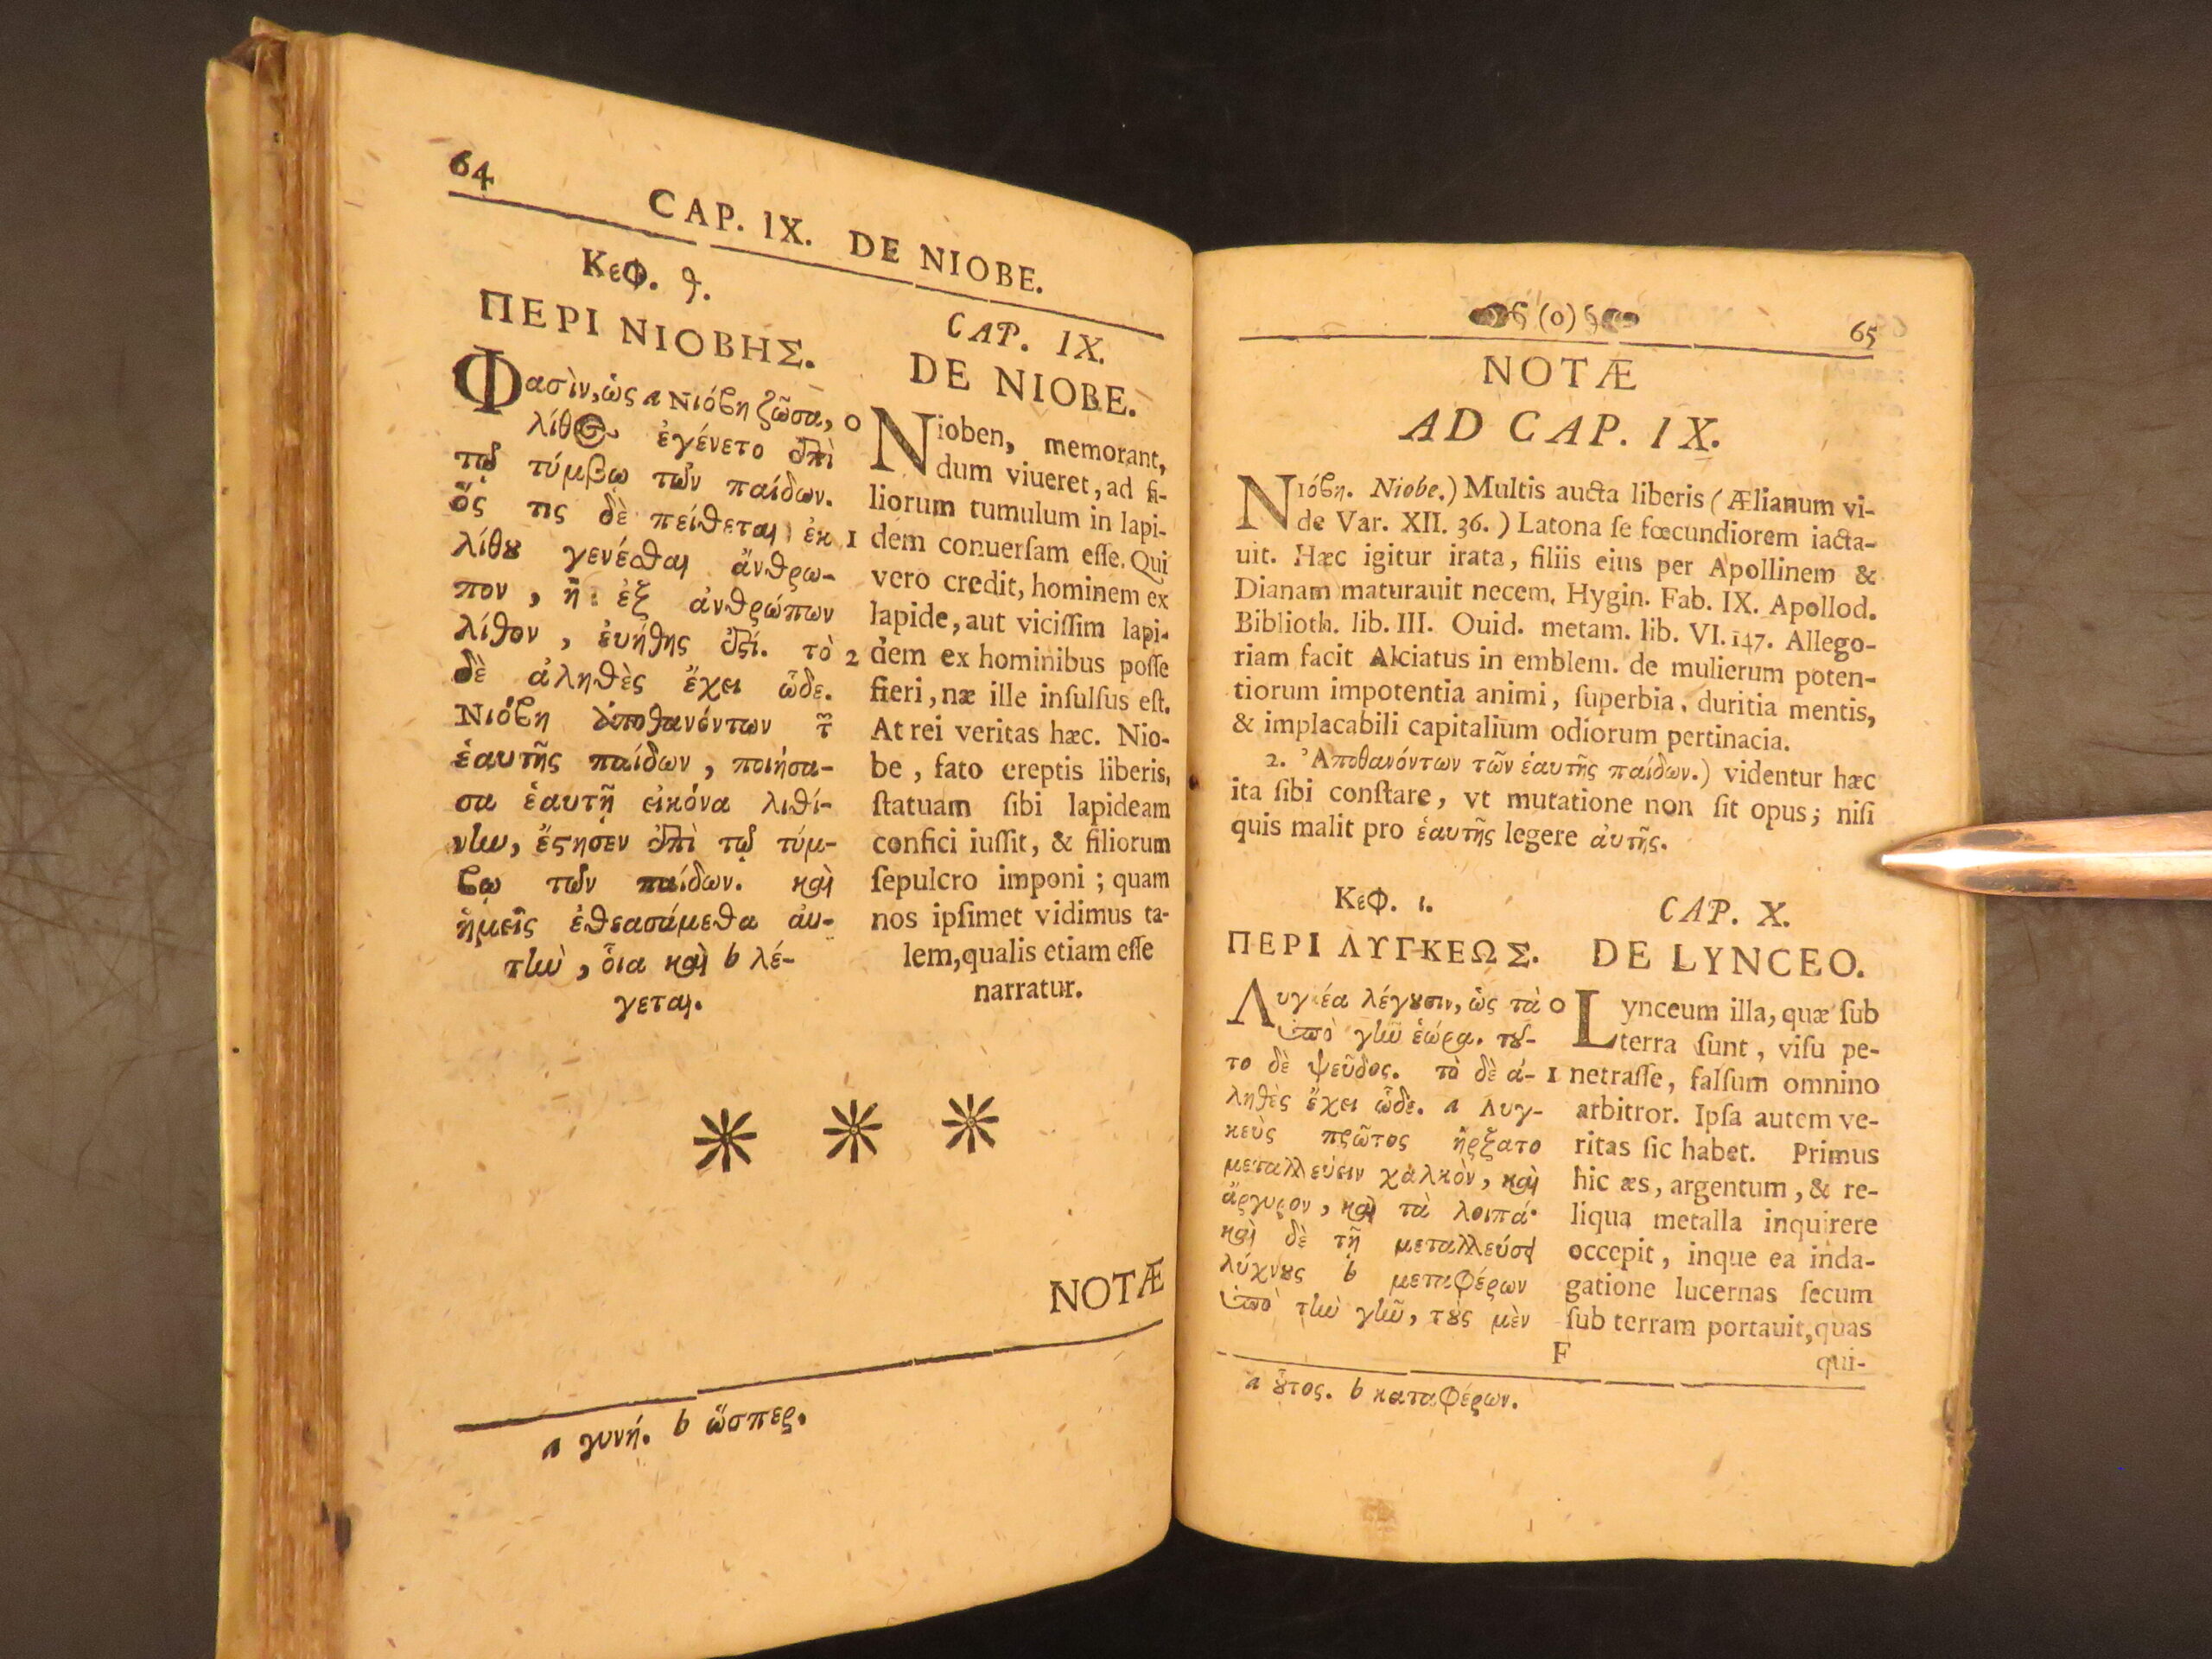 64
CAP. IX. DE NIOBE.
Κεφ. θ.
ΠΕΡΙ ΝΙΟΒΗΣ.
Φασὶν, ὡς a Νιόβη ζῶσα, 0
λίθος ἐγένετο ἐπὶ
τῷ τύμβῳ τῶν παίδων.
ὅς τις δὲ πείθεται ἐκ 1
λίθου γενέσθαι ἄνθρω-
πον, ἢ ἐξ ἀνθρώπων
λίθον, ἐυήθης ἐστί. τὸ 2
δὲ ἀληθὲς ἔχει ὧδε.
Νιόβη ἀποθανόντων τ̃
ἑαυτῆς παίδων, ποιήσα-
σα ἑαυτῇ εἰκόνα λιθί-
νην, ἔστησεν ἐπὶ τῷ τύμ-
βῳ τῶν παίδων. καὶ
ἡμεῖς ἐθεασάμεθα ἀυ-
τὴν, ὅια καὶ b λέ-
γεται.
CAP. IX.
DE NIOBE.
Nioben, memorant,
dum viueret, ad fi-
liorum tumulum in lapi-
dem conuerſam eſſe. Qui
vero credit, hominem ex
lapide, aut viciſſim lapi-
dem ex hominibus poſſe
fieri, næ ille inſulſus eſt.
At rei veritas hæc. Nio-
be, fato ereptis liberis,
ſtatuam ſibi lapideam
confici iuſſit, & filiorum
ſepulcro imponi; quam
nos ipſimet vidimus ta-
lem, qualis etiam eſſe
narratur.
NOTÆ
a γυνή. b ὥσπερ.
(0)
65
NOTÆ
AD CAP. IX.
Νιόβη. Niobe.) Multis aucta liberis (Ælianum vi-
de Var. XII. 36.) Latona ſe fœcundiorem iacta-
uit. Hæc igitur irata, filiis eius per Apollinem &
Dianam maturauit necem. Hygin. Fab. IX. Apollod.
Biblioth. lib. III. Ouid. metam. lib. VI. 147. Allego-
riam facit Alciatus in emblem. de mulierum poten-
tiorum impotentia animi, ſuperbia, duritia mentis,
& implacabili capitalium odiorum pertinacia.
2. Ἀποθανόντων τῶν ἑαυτῆς παίδων.) videntur hæc
ita ſibi conſtare, vt mutatione non ſit opus; niſi
quis malit pro ἑαυτῆς legere ἀυτῆς.
Κεφ. ι.
ΠΕΡΙ ΛΥΓΚΕΩΣ.
Λυγκέα λέγουσιν, ὡς τὰ 0
ὑπὸ γῆν ἑώρα. τοῦ-
το δὲ ψεῦδος. τὸ δὲ ἀ- 1
ληθὲς ἔχει ὧδε. a Λυγ-
κεὺς πρῶτος ἤρξατο
μεταλλεύειν χαλκὸν, καὶ
ἄργυρον, καὶ τὰ λοιπά·
καὶ δὲ τῇ μεταλλεύσει
λύχνους b μεταφέρων
ὑπὸ τὴν γῆν, τοὺς μὲν
CAP. X.
DE LYNCEO.
Lynceum illa, quæ ſub
terra ſunt, viſu pe-
netraſſe, falſum omnino
arbitror. Ipſa autem ve-
ritas ſic habet. Primus
hic æs, argentum, & re-
liqua metalla inquirere
occepit, inque ea inda-
gatione lucernas ſecum
ſub terram portauit, quas
F
qui-
a οὗτος. b καταφέρων.